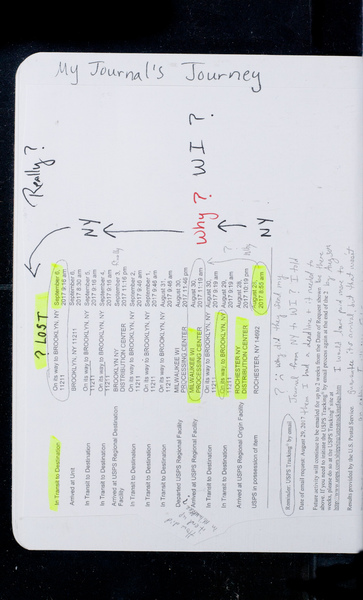 My Journal's Journey
Really?
? LOST
NY
Why? WI?
NY
In Transit to Destination
On its way to BROOKLYN, NY
11211
September 6,
2017 9:16 am
Arrived at Unit
BROOKLYN, NY 11211
September 6,
2017 8:30 am
In Transit to Destination
On its way to BROOKLYN, NY
11211
September 5,
2017 9:16 am
In Transit to Destination
On its way to BROOKLYN, NY
11211
September 4,
2017 9:16 am
Arrived at USPS Regional Destination
Facility
BROOKLYN NY
DISTRIBUTION CENTER
September 3,
2017 11:16 pm
In Transit to Destination
On its way to BROOKLYN, NY
11211
September 2,
2017 9:46 am
In Transit to Destination
On its way to BROOKLYN, NY
11211
September 1,
2017 9:46 am
In Transit to Destination
On its way to BROOKLYN, NY
11211
August 31,
2017 9:46 am
Departed USPS Regional Facility
MILWAUKEE WI
PROCESSING CENTER
August 30,
2017 11:46 pm
Arrived at USPS Regional Facility
MILWAUKEE WI
PROCESSING CENTER
August 30,
2017 11:19 am
In Transit to Destination
On its way to BROOKLYN, NY
11211
August 30,
2017 9:19 am
In Transit to Destination
On its way to BROOKLYN, NY
11211
August 29,
2017 9:19 am
Arrived at USPS Regional Origin Facility
ROCHESTER NY
DISTRIBUTION CENTER
August 28,
2017 10:19 pm
USPS in possession of item
ROCHESTER, NY 14692
August 28,
2017 8:50 am
Reminder: USPS Tracking® by email
Date of email request: August 29, 2017
Future activity will continue to be emailed for up to 2 weeks from the Date of Request shown
above. If you need to initiate the USPS Tracking® by email process again at the end of the 2
weeks, please do so at the USPS Tracking® web site at
Results provided by the U.S. Postal Service
why did they send my
Journal from NY to WI? I told
them I had a deadline
I would have paid more to